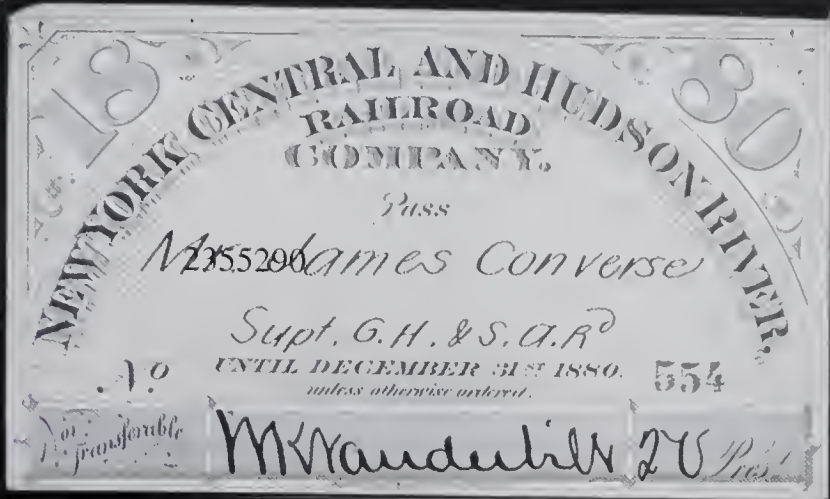 18 80
NEW YORK CENTRAL AND HUDSON RIVER,
RAILROAD
COMPANY.
Pass
Mr James Converse
2355290
Supt. G. H. & S. A. Rd
UNTIL DECEMBER 31ST 1880.
unless otherwise ordered.
No 554
Not Transferrible
WKVanderbilt 2V Pres'